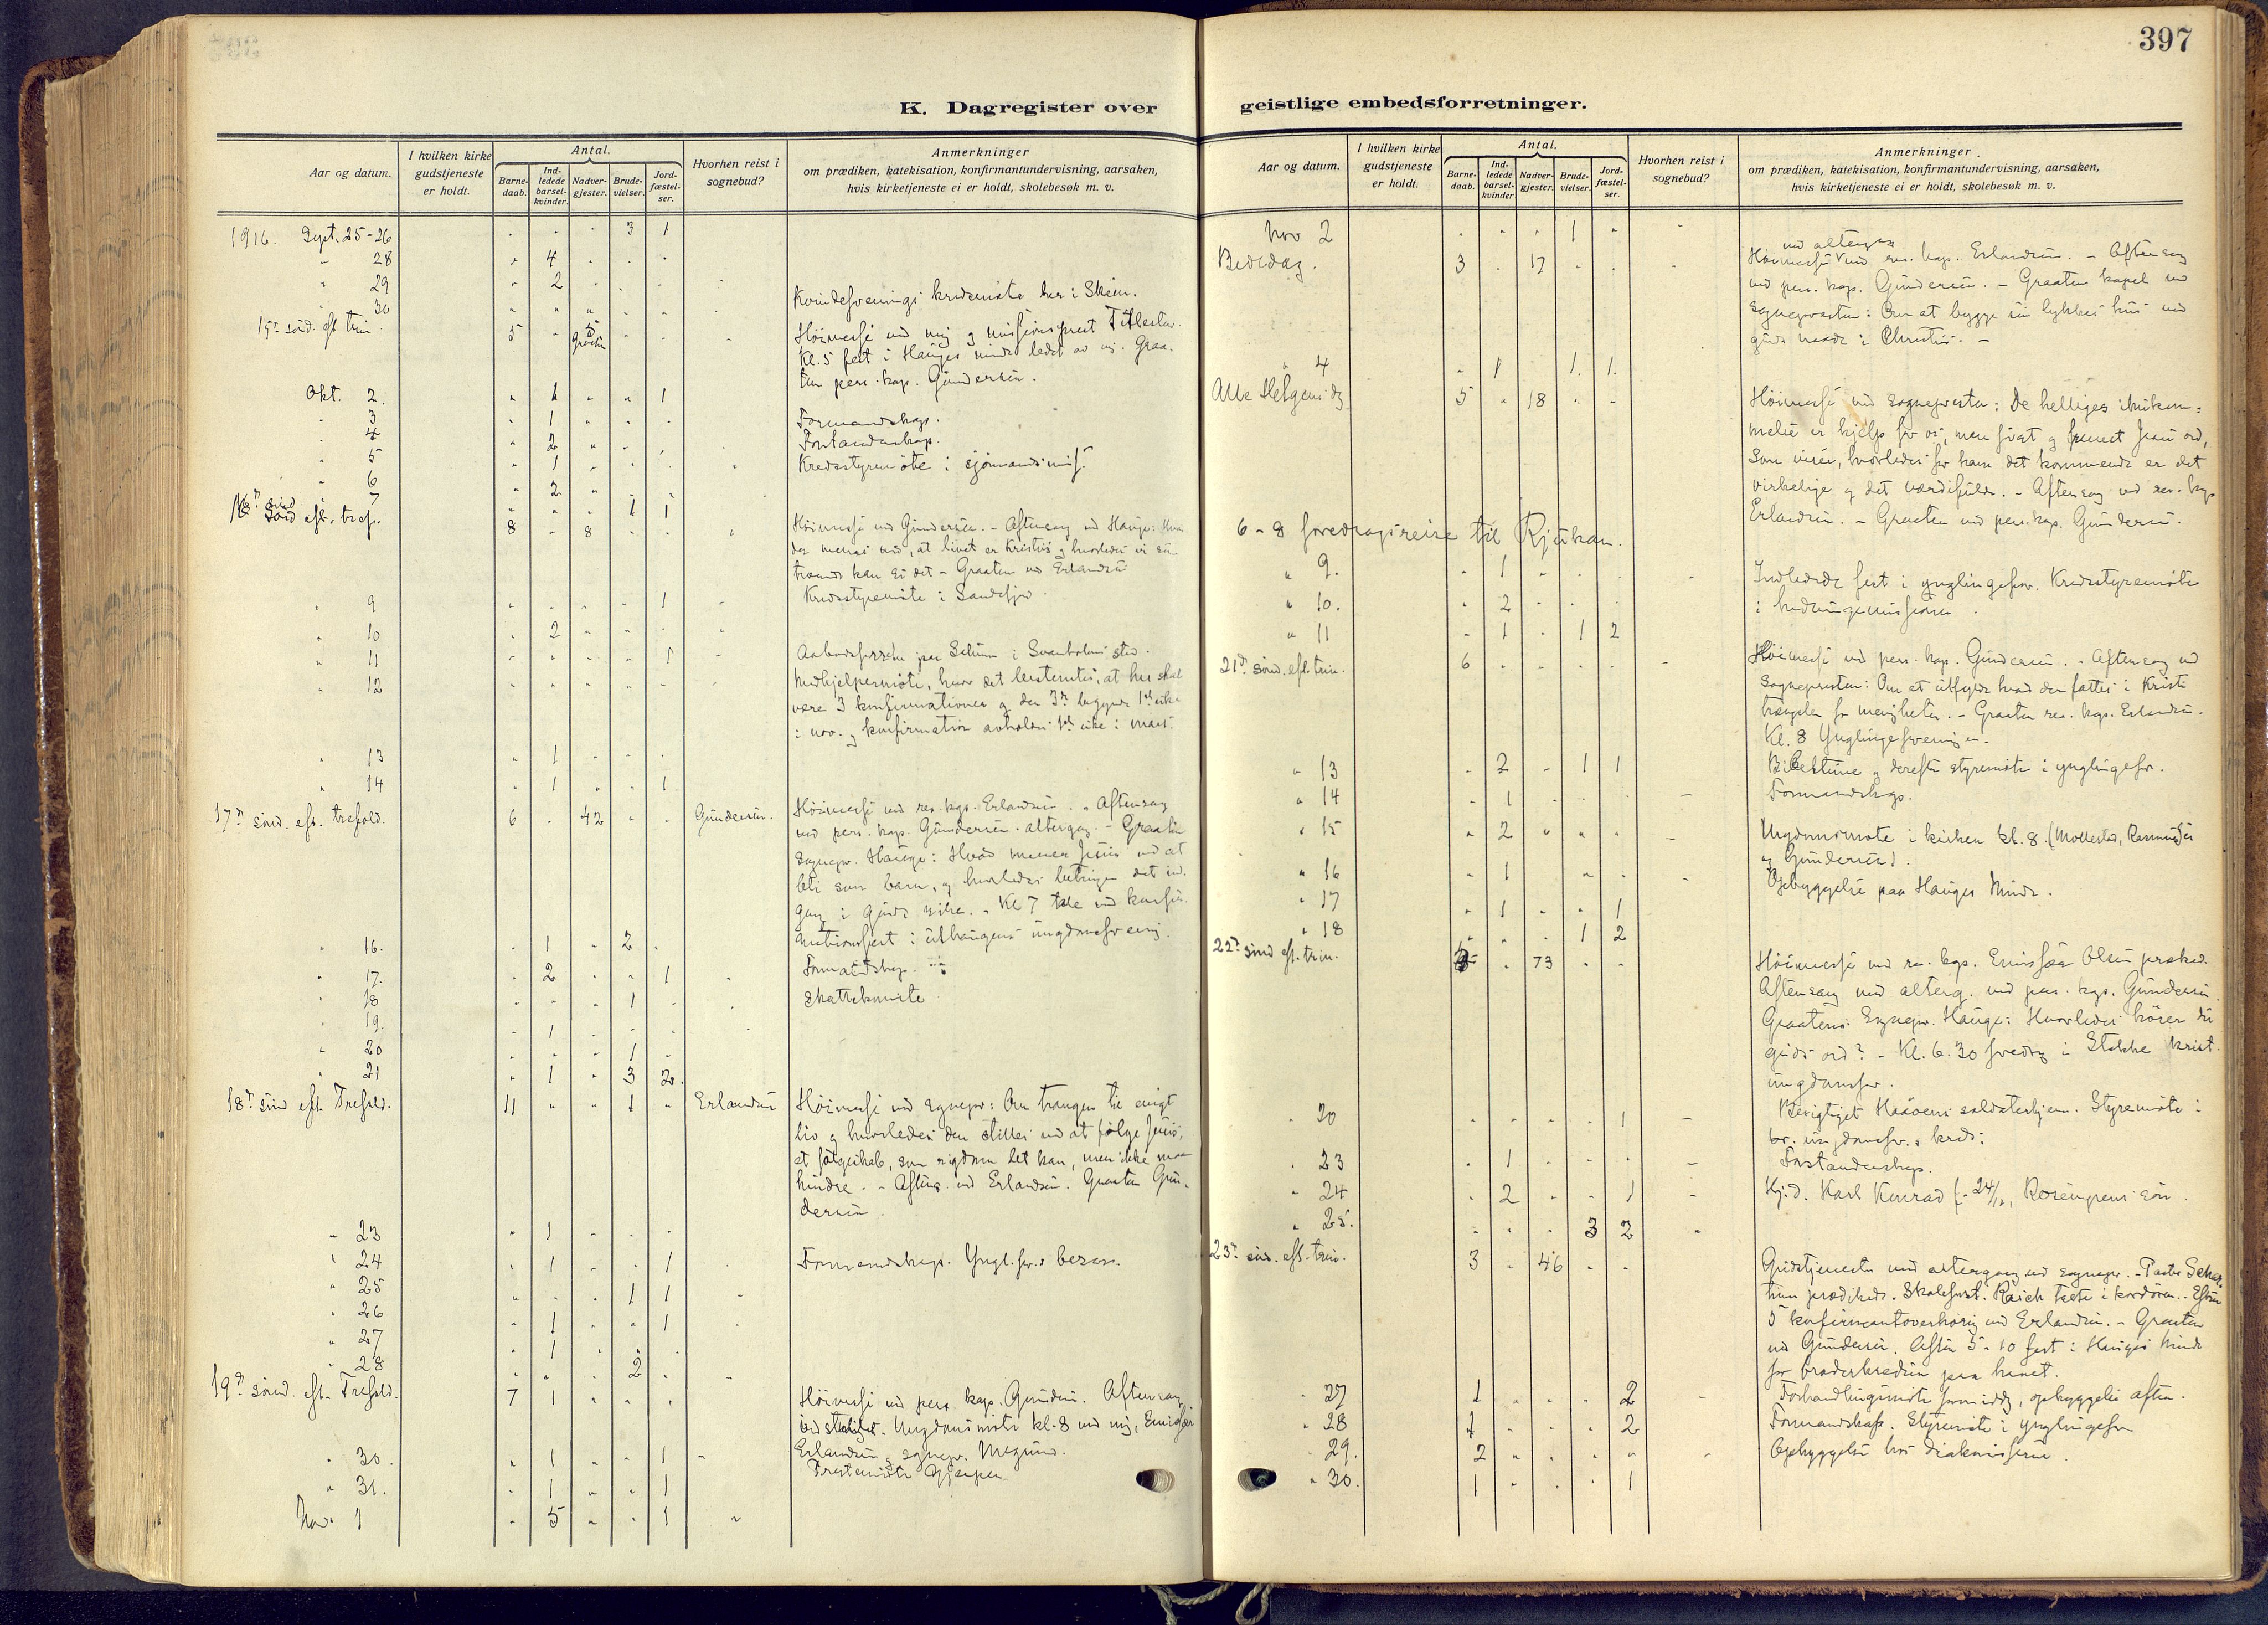 397
K. Dagregister over
geistlige embedsforretninger.
Aar og datum.
I hvilken kirke gudstjeneste er holdt.
Antal.
Barnedaab.
Indledede barselkvinder.
Nadvergjester.
Brudevielser.
Jordfæstelser.
Hvorhen reist i sognebud?
Anmerkninger
om prædiken, katekisation, konfirmantundervisning, aarsaken,
hvis kirketjeneste ei er holdt, skolebesøk m. v.
1916. Sept. 25-26 3 1
28 4
29 2
Kvindeforenings kredsmøte her i Skien.
30
15de sønd. eft. trin. 5
Høimesse ved mig og missionsprest
Kl. 5 fest i Hauges minde ledet av mig. Graa-
ten pers. kap. Gundersen.
Okt. 2. 1 1
3 1 Formandskap.
4 2 Forstanderskap.
5 1 Kredsstyremøte i sjømandsmis.
6 2
7 1 1
sønd. eft. tref. 8 8 Høimesse ved Gundersen. - Aftensang ved Hauge:
menes med, at livet er Kristus og hvorledes vi
kan si det - Graaten ved Erlandsen
9 1 Kredsstyremøte i Sandefjord.
10 2
11 1
12 Medhjelpermøte, hvor det bestemtes, at her skal
være 3 konfirmationer og den 3die begynde 1ste uke
i nov. og konfirmation avholdes 1ste uke i mars.
13 1
14 1 1
17de sønd. eft. trefold. 6 42 Gundersen. Høimesse ved res. kap. Erlandsen. - Aftensang
ved pers. kap. Gundersen. altergang. - Graaten
sognepr. Hauge: Hvad mener Jesus med at
bli som barn, og hvorledes betinges det ind-
gang i Guds rike. - Kl 7 tale ved konfir-
mationsfest i ungdomsforening.
16. 1 2
17. 2 1 Formandskap.
18 1
19. 1
20 1
21 1 3 2
18de sønd eft. Trefold. 11 1 Erlandsen Høimesse ved sognepr: Om trangen til evigt
liv og hvorledes den stilles ved at følge Jesus,
et følgeskab, som rigdom let kan, men ikke maa
hindre. - Aftens. ved Erlandsen. Graaten Gun-
dersen.
23 1
24 1 1 Formandskap. Yngl. for.s
25 1 1
26 1 1
27 1
28 2
19de sønd. eft. Trefold. 7 1 Høimesse ved pers. kap. Gundersen. Aftensang
Ungdomsmøte kl. 8 ved mig, Emissær
Erlandsen og sognepr.
30. 1 1 Prestemøte Gjerpen
31. 1 1
Nov. 1 5 1
Aar og datum.
I hvilken kirke gudstjeneste er holdt.
Antal.
Barnedaab.
Indledede barselkvinder
Nadvergjester.
Brudevielser.
Jordfæstelser.
Hvorhen reist i sognebud?
Anmerkninger.
om prædiken, katekisation, konfirmantundervisning, aarsaken,
hvis kirketjeneste ei er holdt, skolebesøk m. v.
Nov 2 1
med altergang
Bededag. 3 17 Høimesse ved res. kap. Erlandsen. - Aftensang
ved pers. kap. Gundersen. - Graaten kapel ved
sognepresten: Om at bygge sin lykkes hus ved
guds naade i Christus. -
4 1 1. 1.
Alle Helgens dg 5 18 Høimesse ved sognepresten: De helliges
er hjelp for os, men først og fremst Jesu ord,
som viser, hvorledes for ham det kommende er det
virkelige og det værdifulde. - Aftensang ved res. kap
Erlandsen. - Graaten ved pers. kap. Gundersen.
6 - 8 foredragsreise til Rjukan.
9. 1 Indledede fest i ynglingefor. Kredsstyremøte
i hedningemissionen.
10. 2
11 1 1 2
21de sønd. eft. trin. 6 Høimesse ved pers. kap. Gundersen. - Aftensang ved
Sognepresten: Om at utfylde hvad der fattes i Kristi
trængsler for menigheten. - Graaten res. kap. Erlandsen.
Kl. 8 Ynglingeforeningen.
13 2 1 1 Bibeltime og derefter styremøte i ynglingefor.
14 1 Formandskap.
15 2 Ungdomsmøte i kirken kl. 8. (Mollestad,
og Gundersen).
16 1 Opbyggelse paa Hauges Minde.
17 1 1
18 1 2
22de sønd eft. trin. 73 Høimesse ved res. kap. Emissær Olsen præked.
Aftensang med alterg. ved pers. kap. Gundersen.
Graaten: Sognepr. Hauge: Hvorledes hører du
guds ord? - Kl. 6.30 foredrag i krist.
ungdomsfor.
20 1 Besigtiget soldaterhjem. Styremøte i
ungdomsfor.s kreds.
23 1 Forstanderskap.
24 2 1 Hj.d. Karl Konrad f. 24/12, søn.
25. 3 2
23de sønd. eft. trin. 3 46 Gudstjeneste med altergang ved sognepr. - Pastor
prædikede. i kordøren. Efterm
5 konfirmantoverhøring ved Erlandsen. - Graaten
ved Gundersen. Aften 5 - 10 fest i Hauges Minde
for
27 1 2 opbyggelse aften.
28 1 2 Formandskap. Styremøte i ynglingefor
29. 2 Opbyggelse hos diakonissene.
30. 1 1